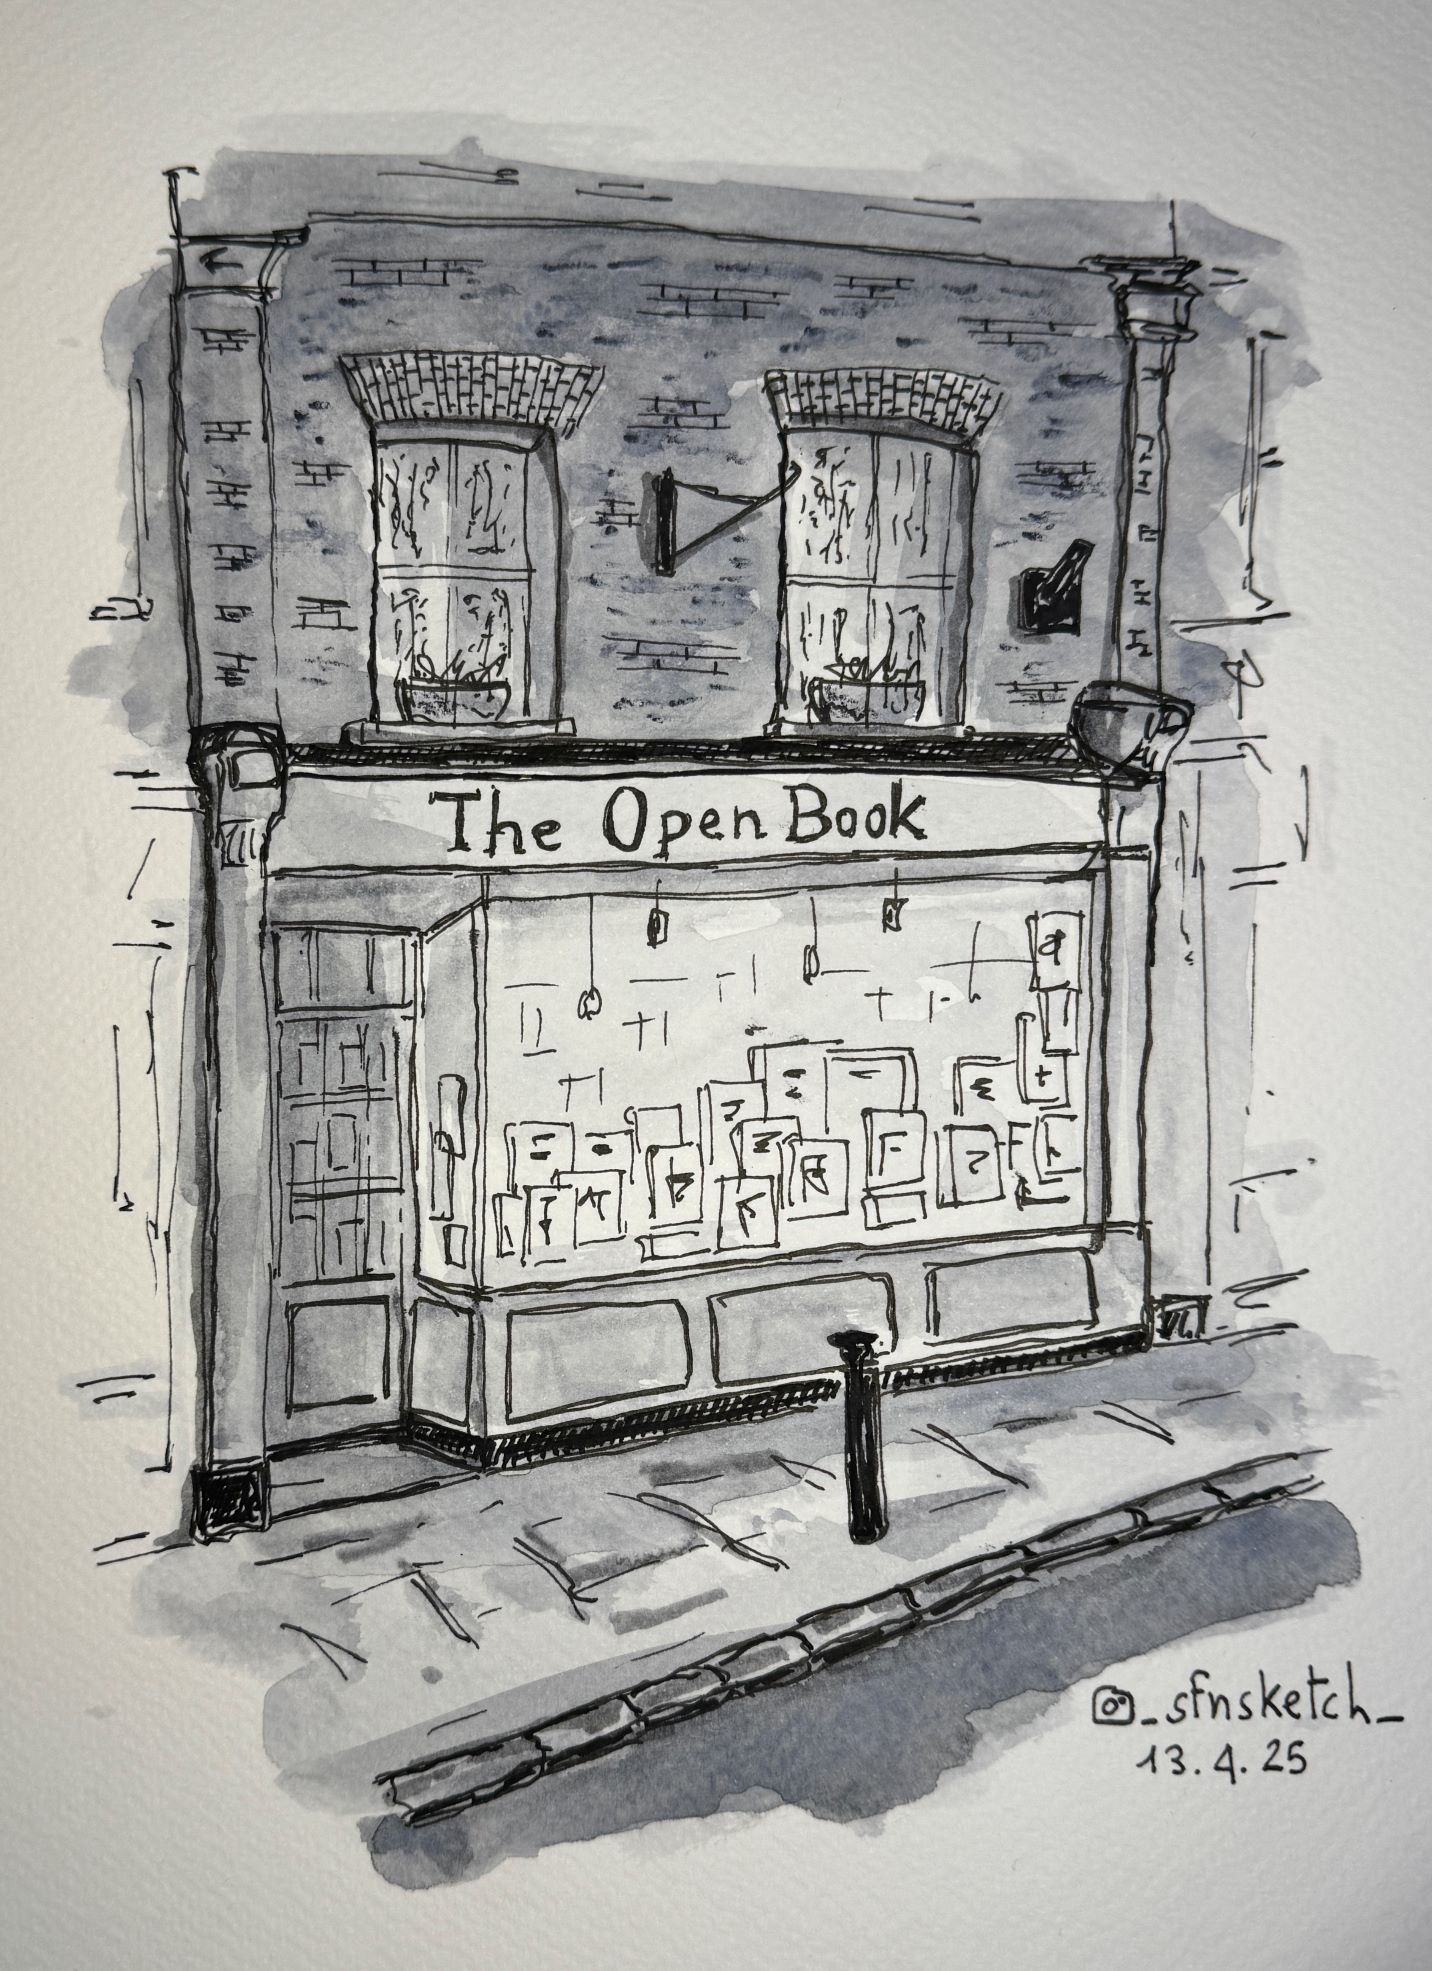 The Open Book
_sfnsketch_
13.4.25